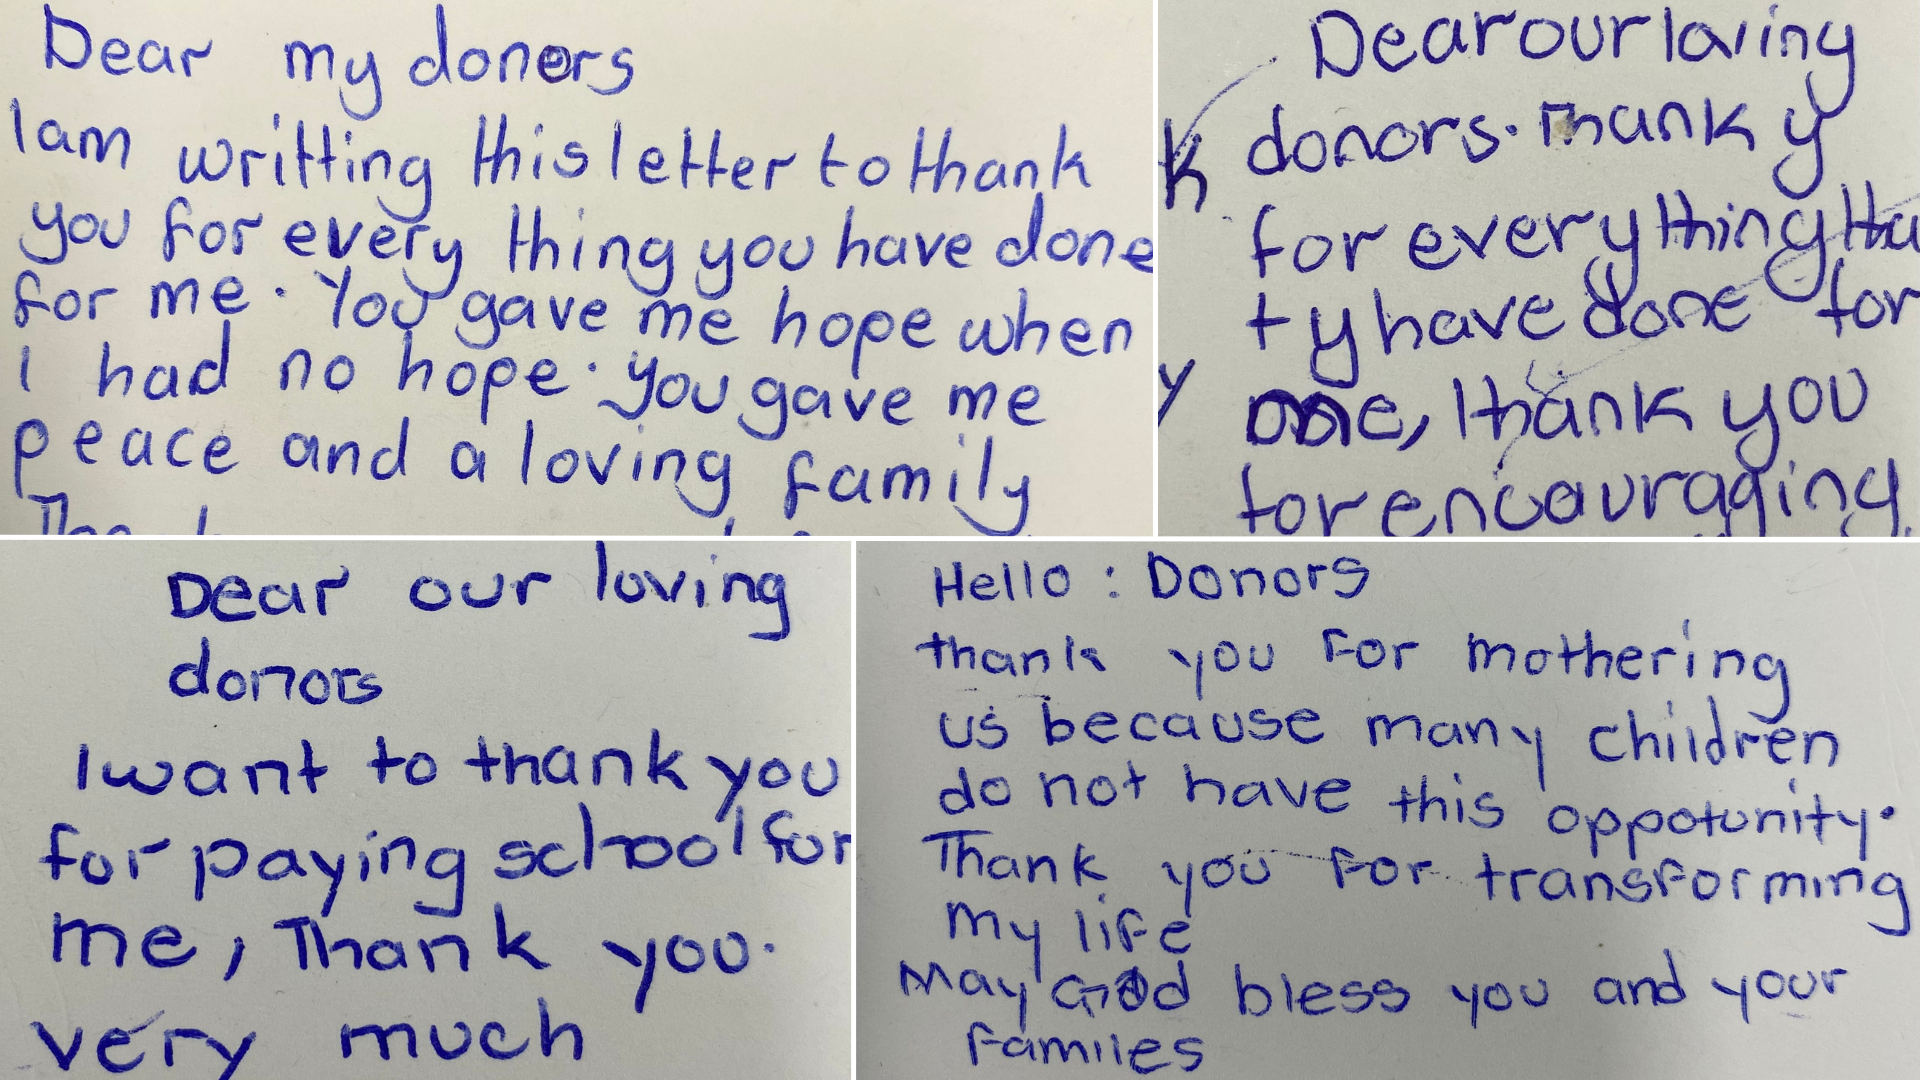 Dear my donors
I am writting this letter to thank
you for every thing you have done
for me. You gave me hope when
I had no hope. You gave me
peace and a loving family
Dear our loving
donors. Thank y
for everything tha
t y have done for
me, thank you
for encouuraging
Dear our loving
donors
I want to thank you
for paying school for
me, Thank you.
very much
Hello: Donors
thank you For mothering
us because many children
do not have this oppotunity.
Thank you For transforming
my life
May God bless you and your
familes